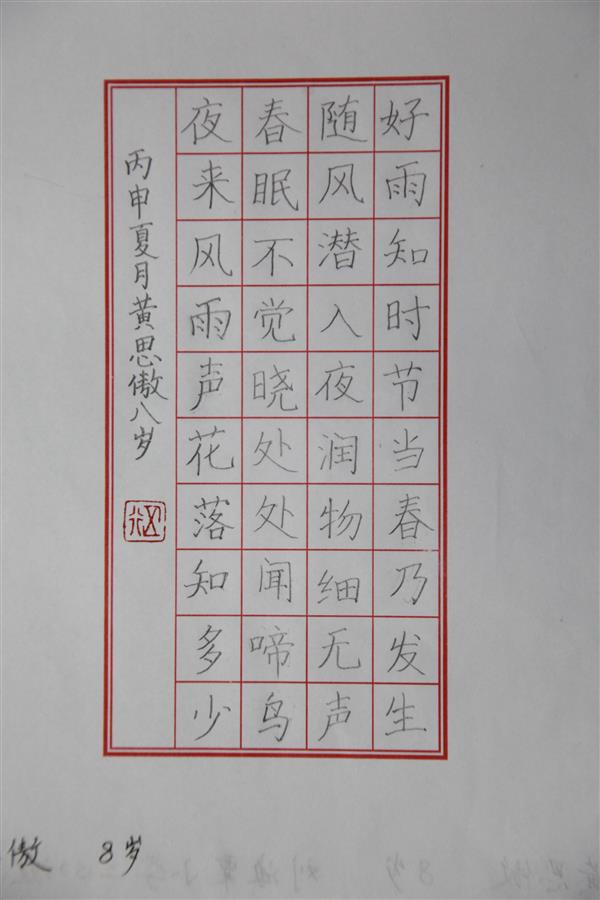 好雨知时节当春乃发生
随风潜入夜润物细无声
春眠不觉晓处处闻啼鸟
夜来风雨声花落知多少
丙申夏月黄思傲八岁
傲 8岁